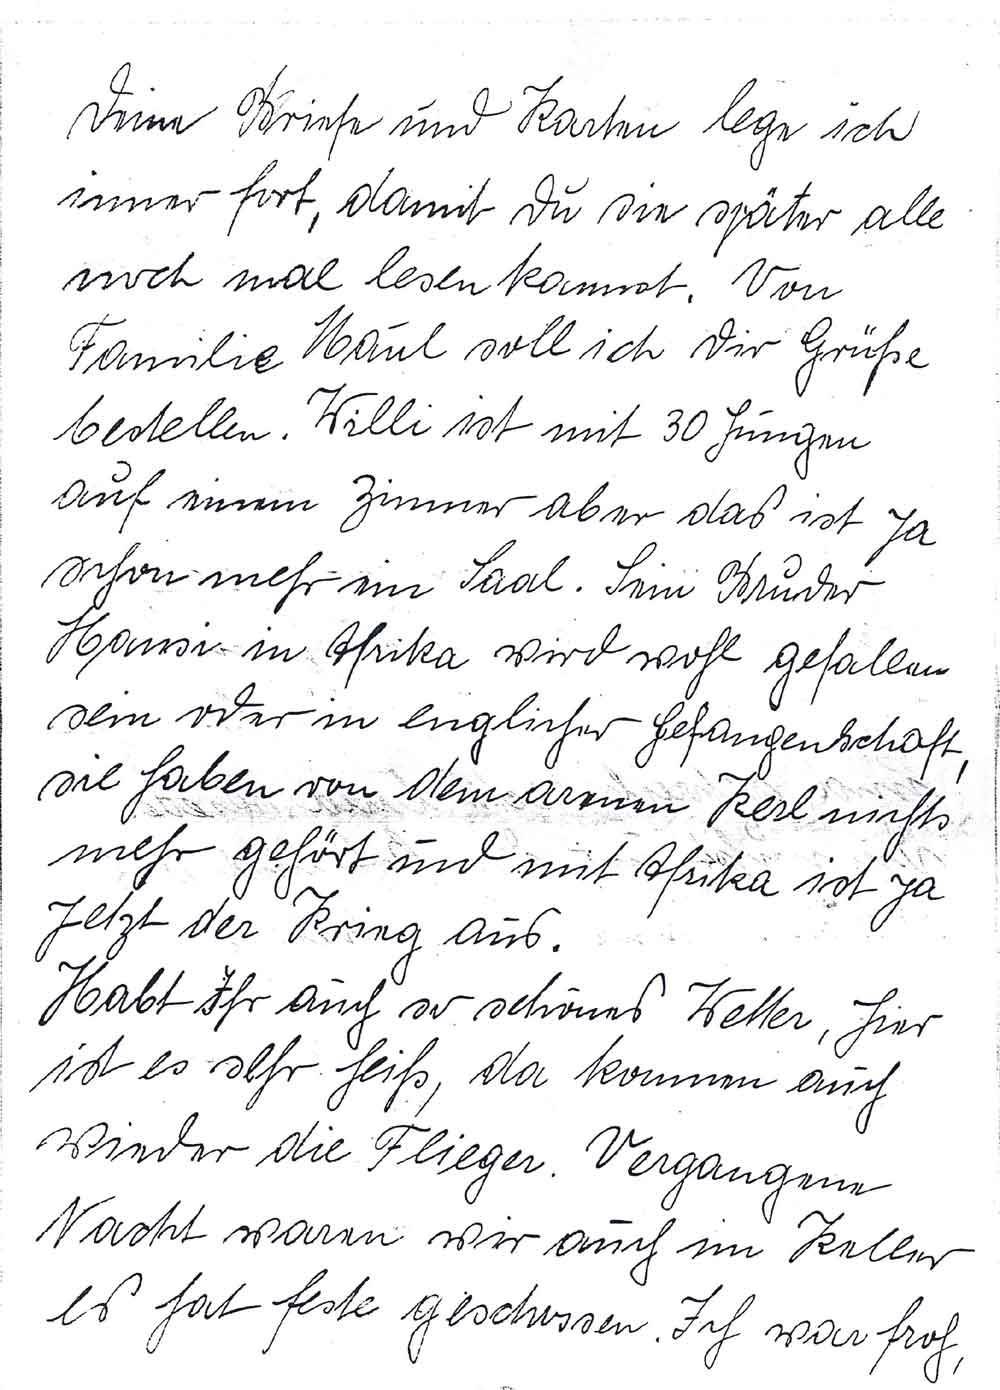 Deine Briefe und Karten lege ich
immer fort, damit Du sie später alle
noch mal lesen kannst. Von
Familie Maul soll ich Dir Grüße
bestellen. Willi ist mit 30 Jungen
auf einem Zimmer aber das ist ja
schon mehr ein Saal. Sein Bruder
Hansi in Afrika wird wohl gefallen
sein oder in englicher Gefangenschaft,
sie haben von dem armen Kerl nichts
mehr gehört und mit Afrika ist ja
jetzt der Krieg aus.
Habt Ihr auch so schönes Wetter, hier
ist es sehr heiß, da kommen auch
wieder die Flieger. Vergangene
Nacht waren wir auch im Keller
es hat feste geschossen. Ich war froh,